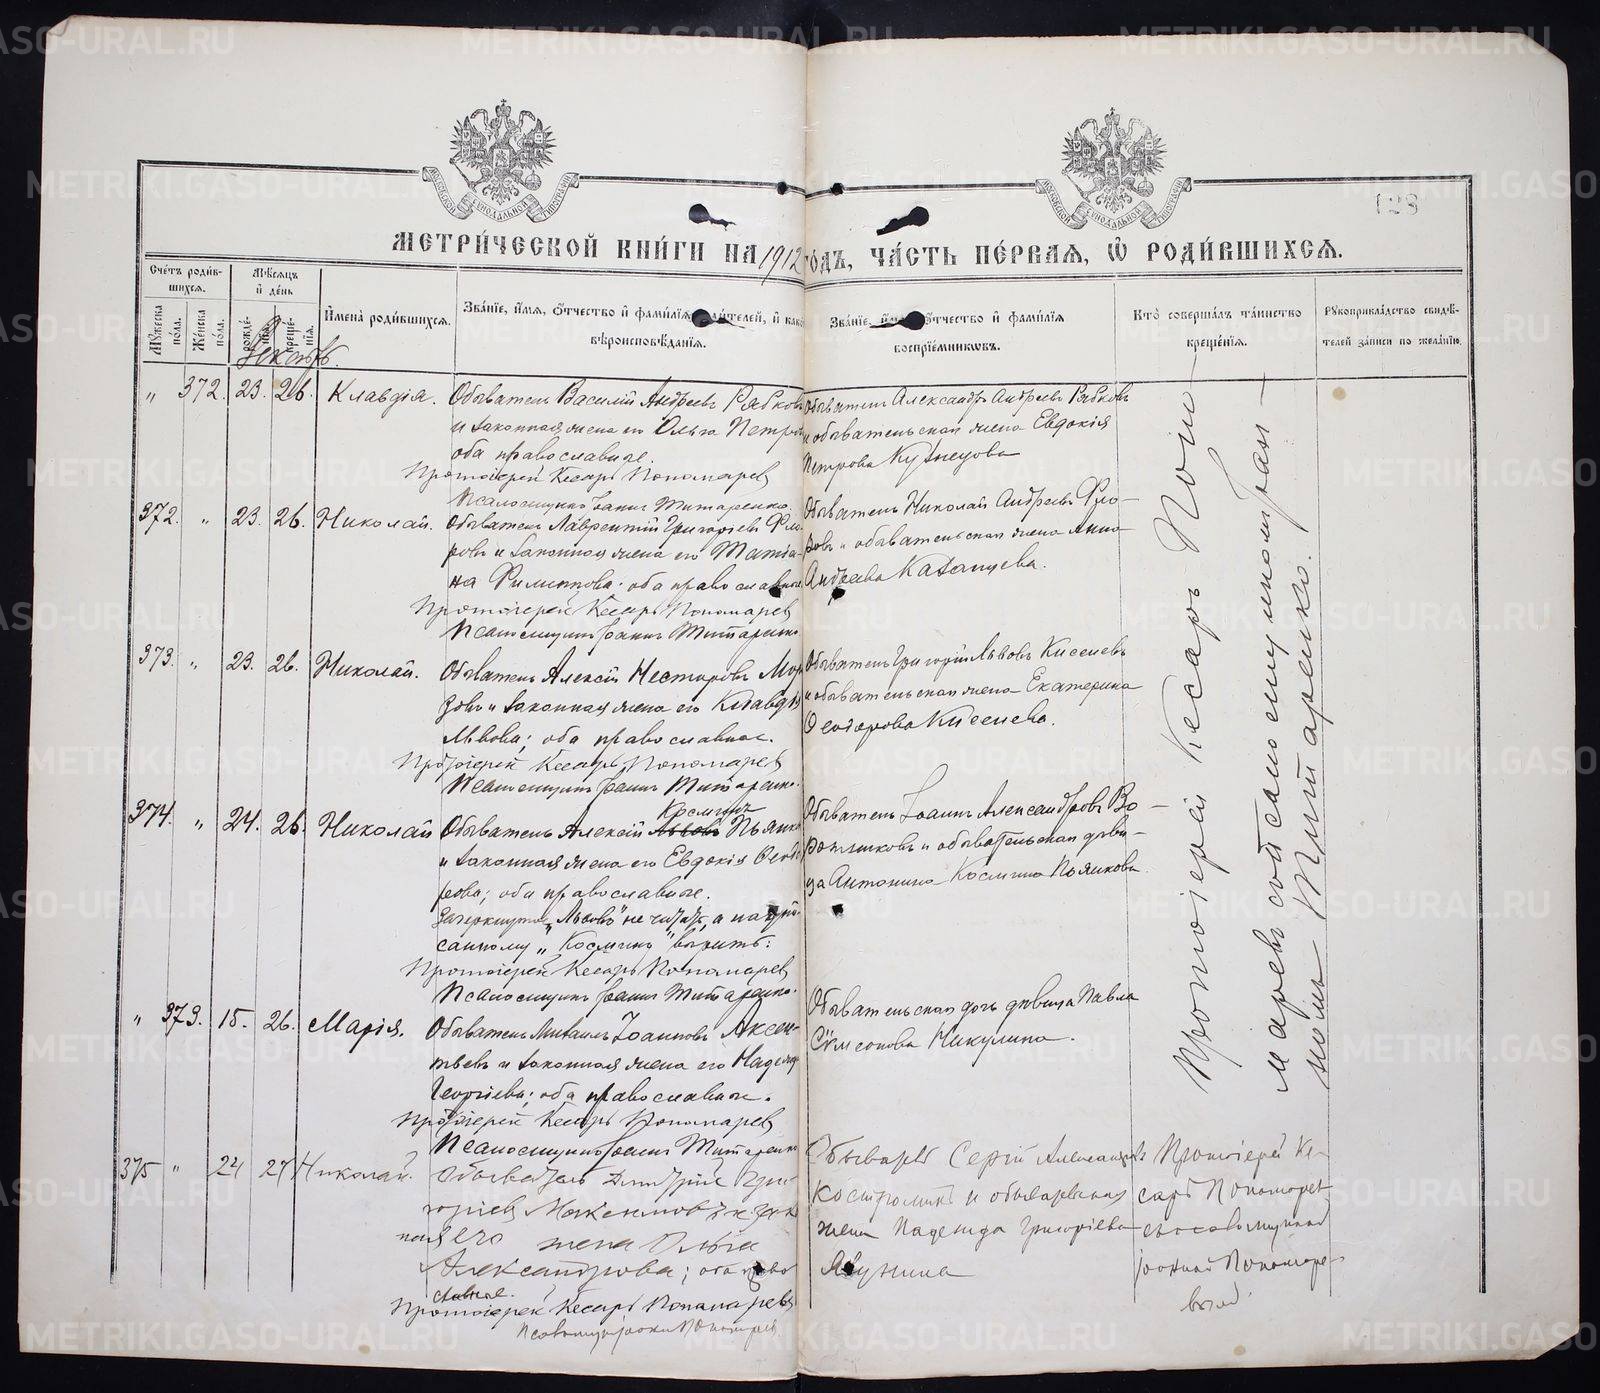 128
МОСКОВСКОЙ СѴНОДАЛЬНОЙ ТИПОГРАФІИ
МОСКОВСКОЙ СѴНОДАЛЬНОЙ ТИПОГРАФІИ
МЕТРИ́ЧЕСКОЙ КНИ́ГИ НА 1912 ГОДЪ, ЧА́СТЬ ПЕ́РВАЯ, Ѡ҆ РОДИ́ВШИХСЯ.
Сче́тъ роди́в-
шихся.
Мѹ́жеска по́ла.
Же́нска по́ла.
Мѣ́сяцъ
и҆ де́нь
рожде́-нія.
креще́-нія.
Декабрь.
И҆мена̀ роди́вшихся.
Зва́нїе, и҆́мя, ѻ҆́тчество и҆ фами́лїя роди́телей, и҆ како́
вѣроисповѣ́данїя.
Зва́нїе, и҆́мя, ѻ҆́тчество и҆ фами́лїя
воспрїе́мниковъ.
Кто̀ соверша́лъ та́инство
креще́нїя.
Рѹкоприкла́дство свидѣ́-
телей за́писи по жела́нїю.
" 372. 23. 26. Клавдія.
Обыватель Василій Андреевъ Рябковъ
и законная жена его Ольга Петрова
оба православные.
Протоіерей Кесарь Пономаревъ
Псаломщикъ Іоаннъ Титаренко.
Обыватель Александръ Андреевъ Рябковъ
и обывательская жена Евдокія
Петрова Кузнецова
372. " 23. 26. Николай.
Обыватель Лаврентій Григоріевъ Фло-
ровъ и законная жена его Татіа-
на Филиппова; оба православные.
Протоіерей Кесарь Пономаревъ
Псаломщикъ Іоаннъ Титаренко
Обыватель Николай Андреевъ Фло-
ровъ и обывательская жена Анна
Андреева Казанцева.
373. " 23. 26. Николай.
Обыватель Алексій Несторовъ Моро
зовъ и законная жена его Клавдія
Львова; оба православные.
Протоіерей Кесарь Пономаревъ
Псаломщикъ Іоаннъ Титаренко.
Обыватель Григорій Львовъ Киселевъ
и обывательская жена Екатерина
Ѳеодорова Киселева.
374. " 24. 26. Николай
Косминъ
Обыватель Алексій Львовъ Пьянков
и законная жена его Евдокія Ѳеодо
рова; оба православные.
Зачеркнутое „Львовъ" не читать, а надпи-
санному „Косминъ" вѣрить:
Протоіерей Кесарь Пономаревъ
Псаломщикъ Іоаннъ Титаренко.
Обыватель Іоаннъ Александровъ Во-
ротниковъ и обывательская дѣви-
ца Антонина Космина Пьянкова
" 373. 15. 26. Марія.
Обыватель Михаилъ Іоанновъ Аксен-
тьевъ и законная жена его Надежда
Георгіева; оба православные.
Протоіерей Кесарь Пономаревъ
Псаломщикъ Іоаннъ Титаренко
Обывательская дочь дѣвица Павла
Сѵмеонова Никулина.
375 " 24 27 Николай.
Обыватель Дмитрій Гри-
горіевъ Максимовъ и закон
ная его жена Ольга
Александрова; оба право
славные.
Протоіерей Кесарь Пономаревъ
Псаломщикъ Іоаннъ Пономаревъ.
Обыватель Сергій Александровъ
Костроминъ и обывательская
жена Надежда Григоріева
Якунина
Протоіерей Ке-
сарь Пономаревъ
съ псаломщикомъ
Іоанномъ Пономаре-
вымъ.
Протоіерей Кесарь Поно-
маревъ съ псаломщикомъ Іоан-
номъ Титаренко.
METRIKI.GASO-URAL.RU